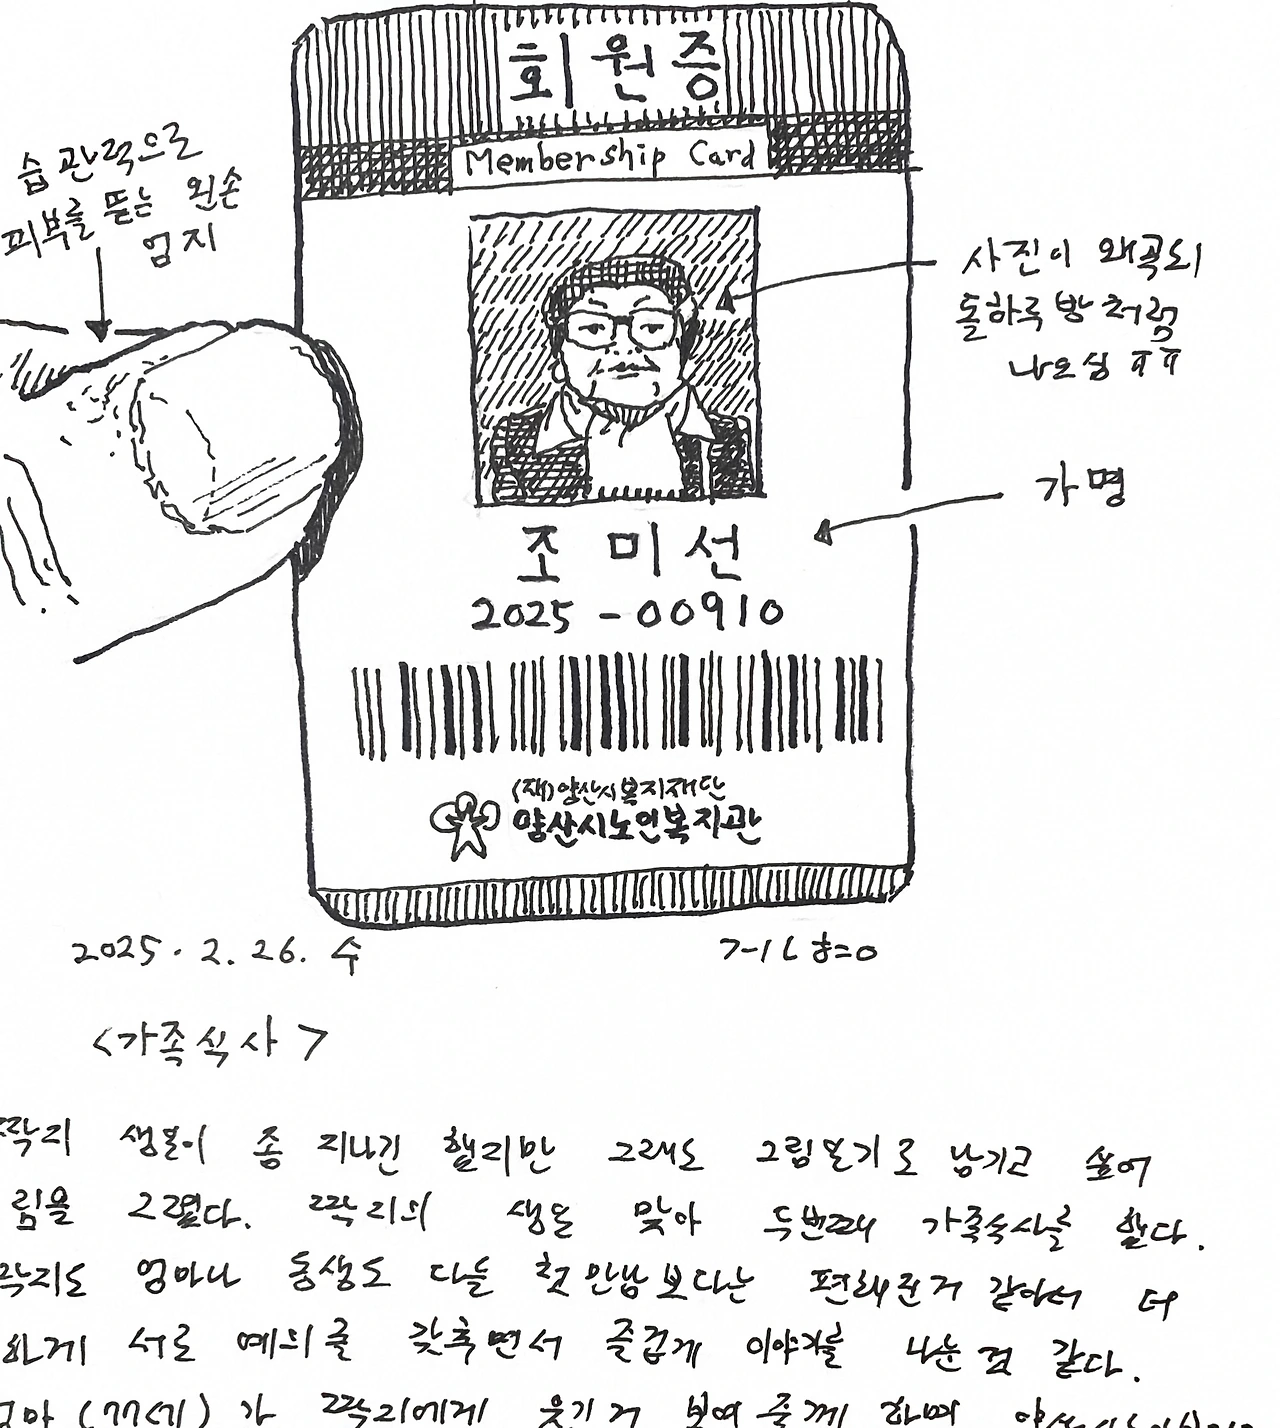 회원증
Membership Card
습관적으로
피부를 뜯는 왼손
엄지
사진이 왜곡되
돌하루방처럼
나오심 ㅠㅠ
가명
조미선
2025-00910
(재)양산시복지재단
양산시노인복지관
2025. 2. 26. 수
<가족식사>
짝지 생일이 좀 지나긴 했지만 그래도 그림일기로 남기고 싶어
림을 그렸다. 짝지의 생일 맞아 두번째 가족식사를 했다.
짝지도 엄마나 동생도 다들 첫만남보다는 편해진거 같아서 더
하게 서로 예의를 갖추면서 즐겁게 이야기를 나눈 것 같다.
엄마 (77세)가 짝지에게 웃긴거 보여줄께 하며